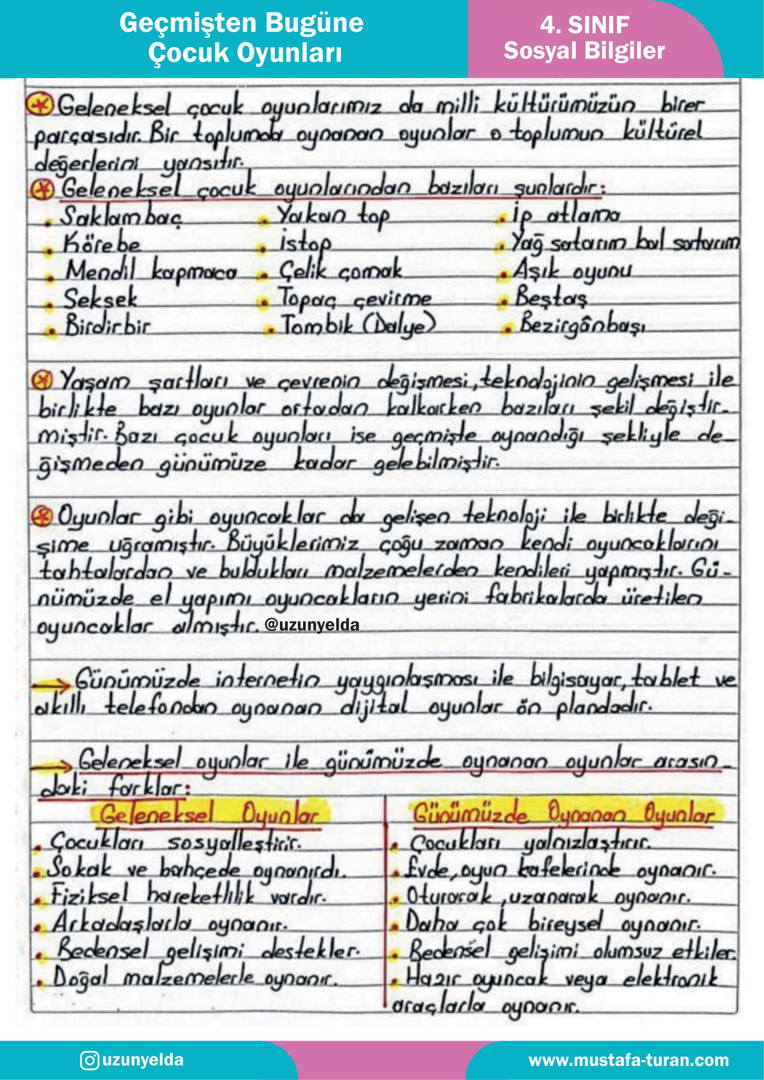 Geçmişten Bugüne
Çocuk Oyunları
4. SINIF
Sosyal Bilgiler
Geleneksel çocuk oyunlarımız da milli kültürümüzün birer
parçasıdır. Bir toplumda oynanan oyunlar o toplumun kültürel
değerlerini yansıtır.
Geleneksel çocuk oyunlarından bazıları şunlardır:
• Saklambaç • Yakan top • İp atlama
• Körebe • İstop • Yağ satarım bal satarım
• Mendil kapmaca • Çelik çomak • Aşık oyunu
• Seksek • Topaç çevirme • Beştaş
• Birdirbir • Tombik (Dalye) • Bezirgânbaşı
Yaşam şartları ve çevrenin değişmesi, teknolojinin gelişmesi ile
birlikte bazı oyunlar ortadan kalkarken bazıları şekil değiştir-
miştir. Bazı çocuk oyunları ise geçmişte oynandığı şekliyle de-
ğişmeden günümüze kadar gelebilmiştir.
Oyunlar gibi oyuncaklar da gelişen teknoloji ile birlikte deği-
şime uğramıştır. Büyüklerimiz çoğu zaman kendi oyuncaklarını
tahtalardan ve buldukları malzemelerden kendileri yapmıştır. Gü-
nümüzde el yapımı oyuncakların yerini fabrikalarda üretilen
oyuncaklar almıştır. @uzunyelda
→ Günümüzde internetin yaygınlaşması ile bilgisayar, tablet ve
akıllı telefondan oynanan dijital oyunlar ön plandadır.
→ Geleneksel oyunlar ile günümüzde oynanan oyunlar arasın-
daki farklar:
Geleneksel Oyunlar
• Çocukları sosyalleştirir.
• Sokak ve bahçede oynanırdı.
• Fiziksel hareketlilik vardır.
• Arkadaşlarla oynanır.
• Bedensel gelişimi destekler.
• Doğal malzemelerle oynanır.
Günümüzde Oynanan Oyunlar
• Çocukları yalnızlaştırır.
• Evde, oyun kafelerinde oynanır.
• Oturarak, uzanarak oynanır.
• Daha çok bireysel oynanır.
• Bedensel gelişimi olumsuz etkiler.
• Hazır oyuncak veya elektronik
araçlarla oynanır.
uzunyelda
www.mustafa-turan.com